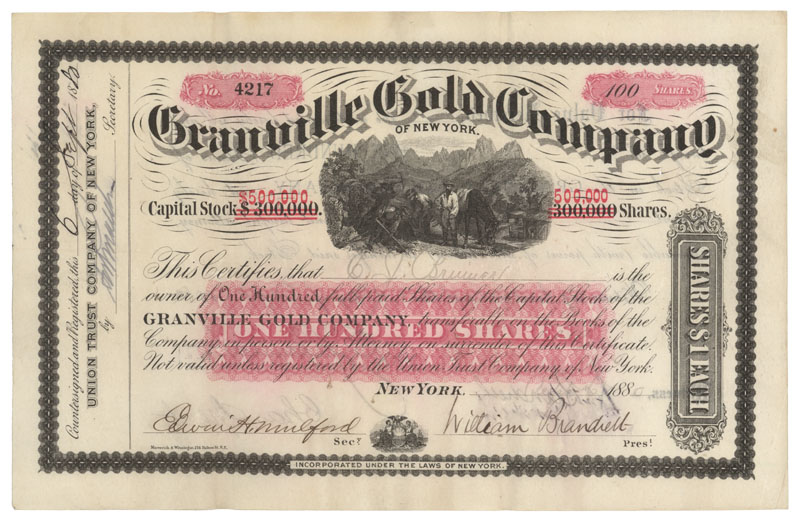 No. 4217
100 SHARES.
Granville Gold Company
OF NEW YORK.
$500,000
Capital Stock $300,000.
500,000
300,000 Shares.
This Certifies, that
is the
owner of One Hundred full paid Shares of the Capital Stock of the
GRANVILLE GOLD COMPANY, transferable on the Books of the
Company in person or by Attorney on surrender of this Certificate.
Not valid unless registered by the Union Trust Company of New York.
ONE HUNDRED SHARES
NEW YORK. 188
Edwin H. Mulford
Secy.
William Brandreth
Prest.
INCORPORATED UNDER THE LAWS OF NEW YORK.
Countersigned and Registered, this 6 day of Sept 18
UNION TRUST COMPANY OF NEW YORK,
by Secretary.
SHARES $1 EACH